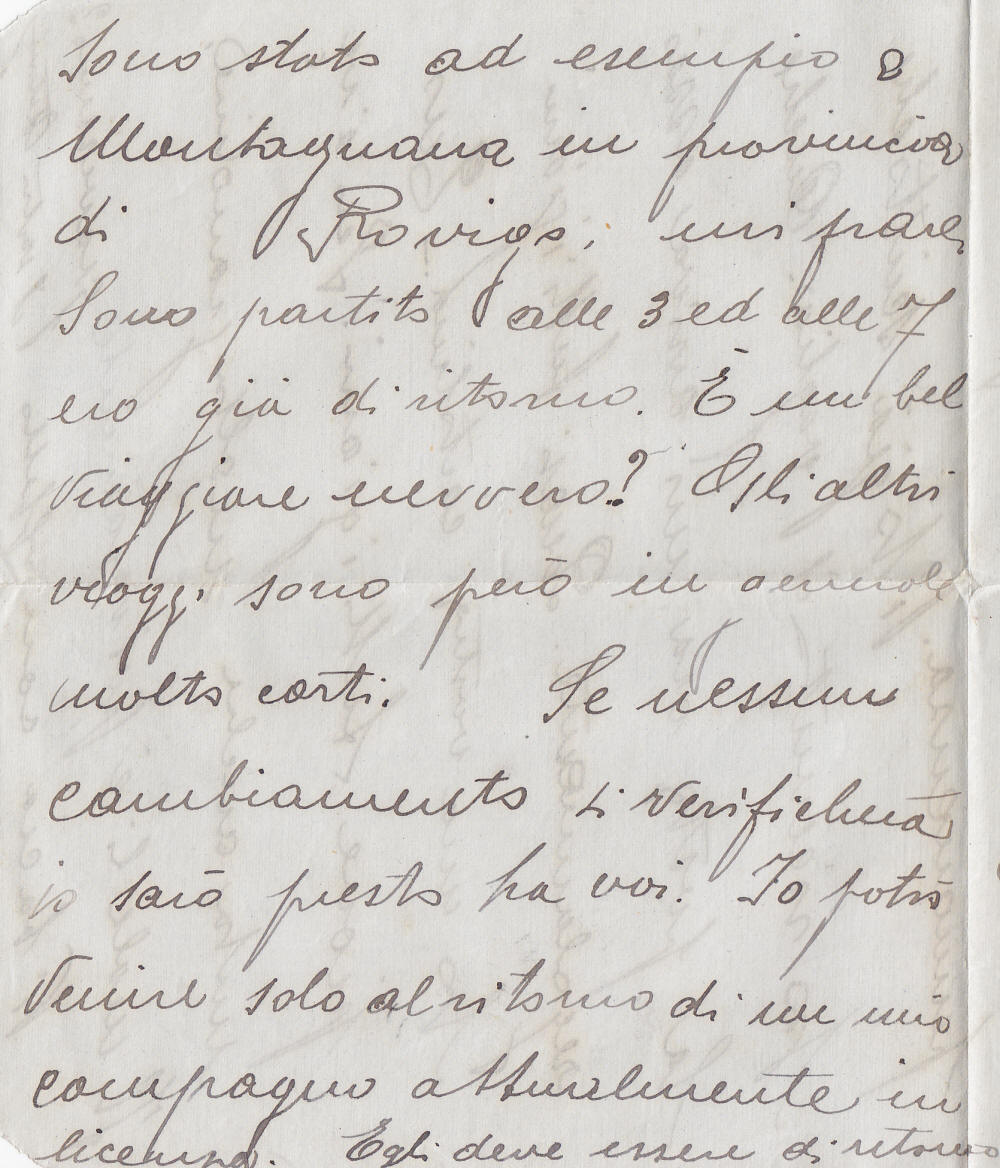 Sono stato ad esempio a
Montagnana in provincia
di Rovigo, mi pare,
Sono partito alle 3 ed alle 7
ero già di ritorno. È un bel
viaggiare nevvero? Gli altri
viaggi sono però in generale
molto corti. Se nessun
cambiamento si verificherà
io sarò presto fra voi. Io potrò
venire solo al ritorno di un mio
compagno attualmente in
licenza. Egli deve essere di ritorno